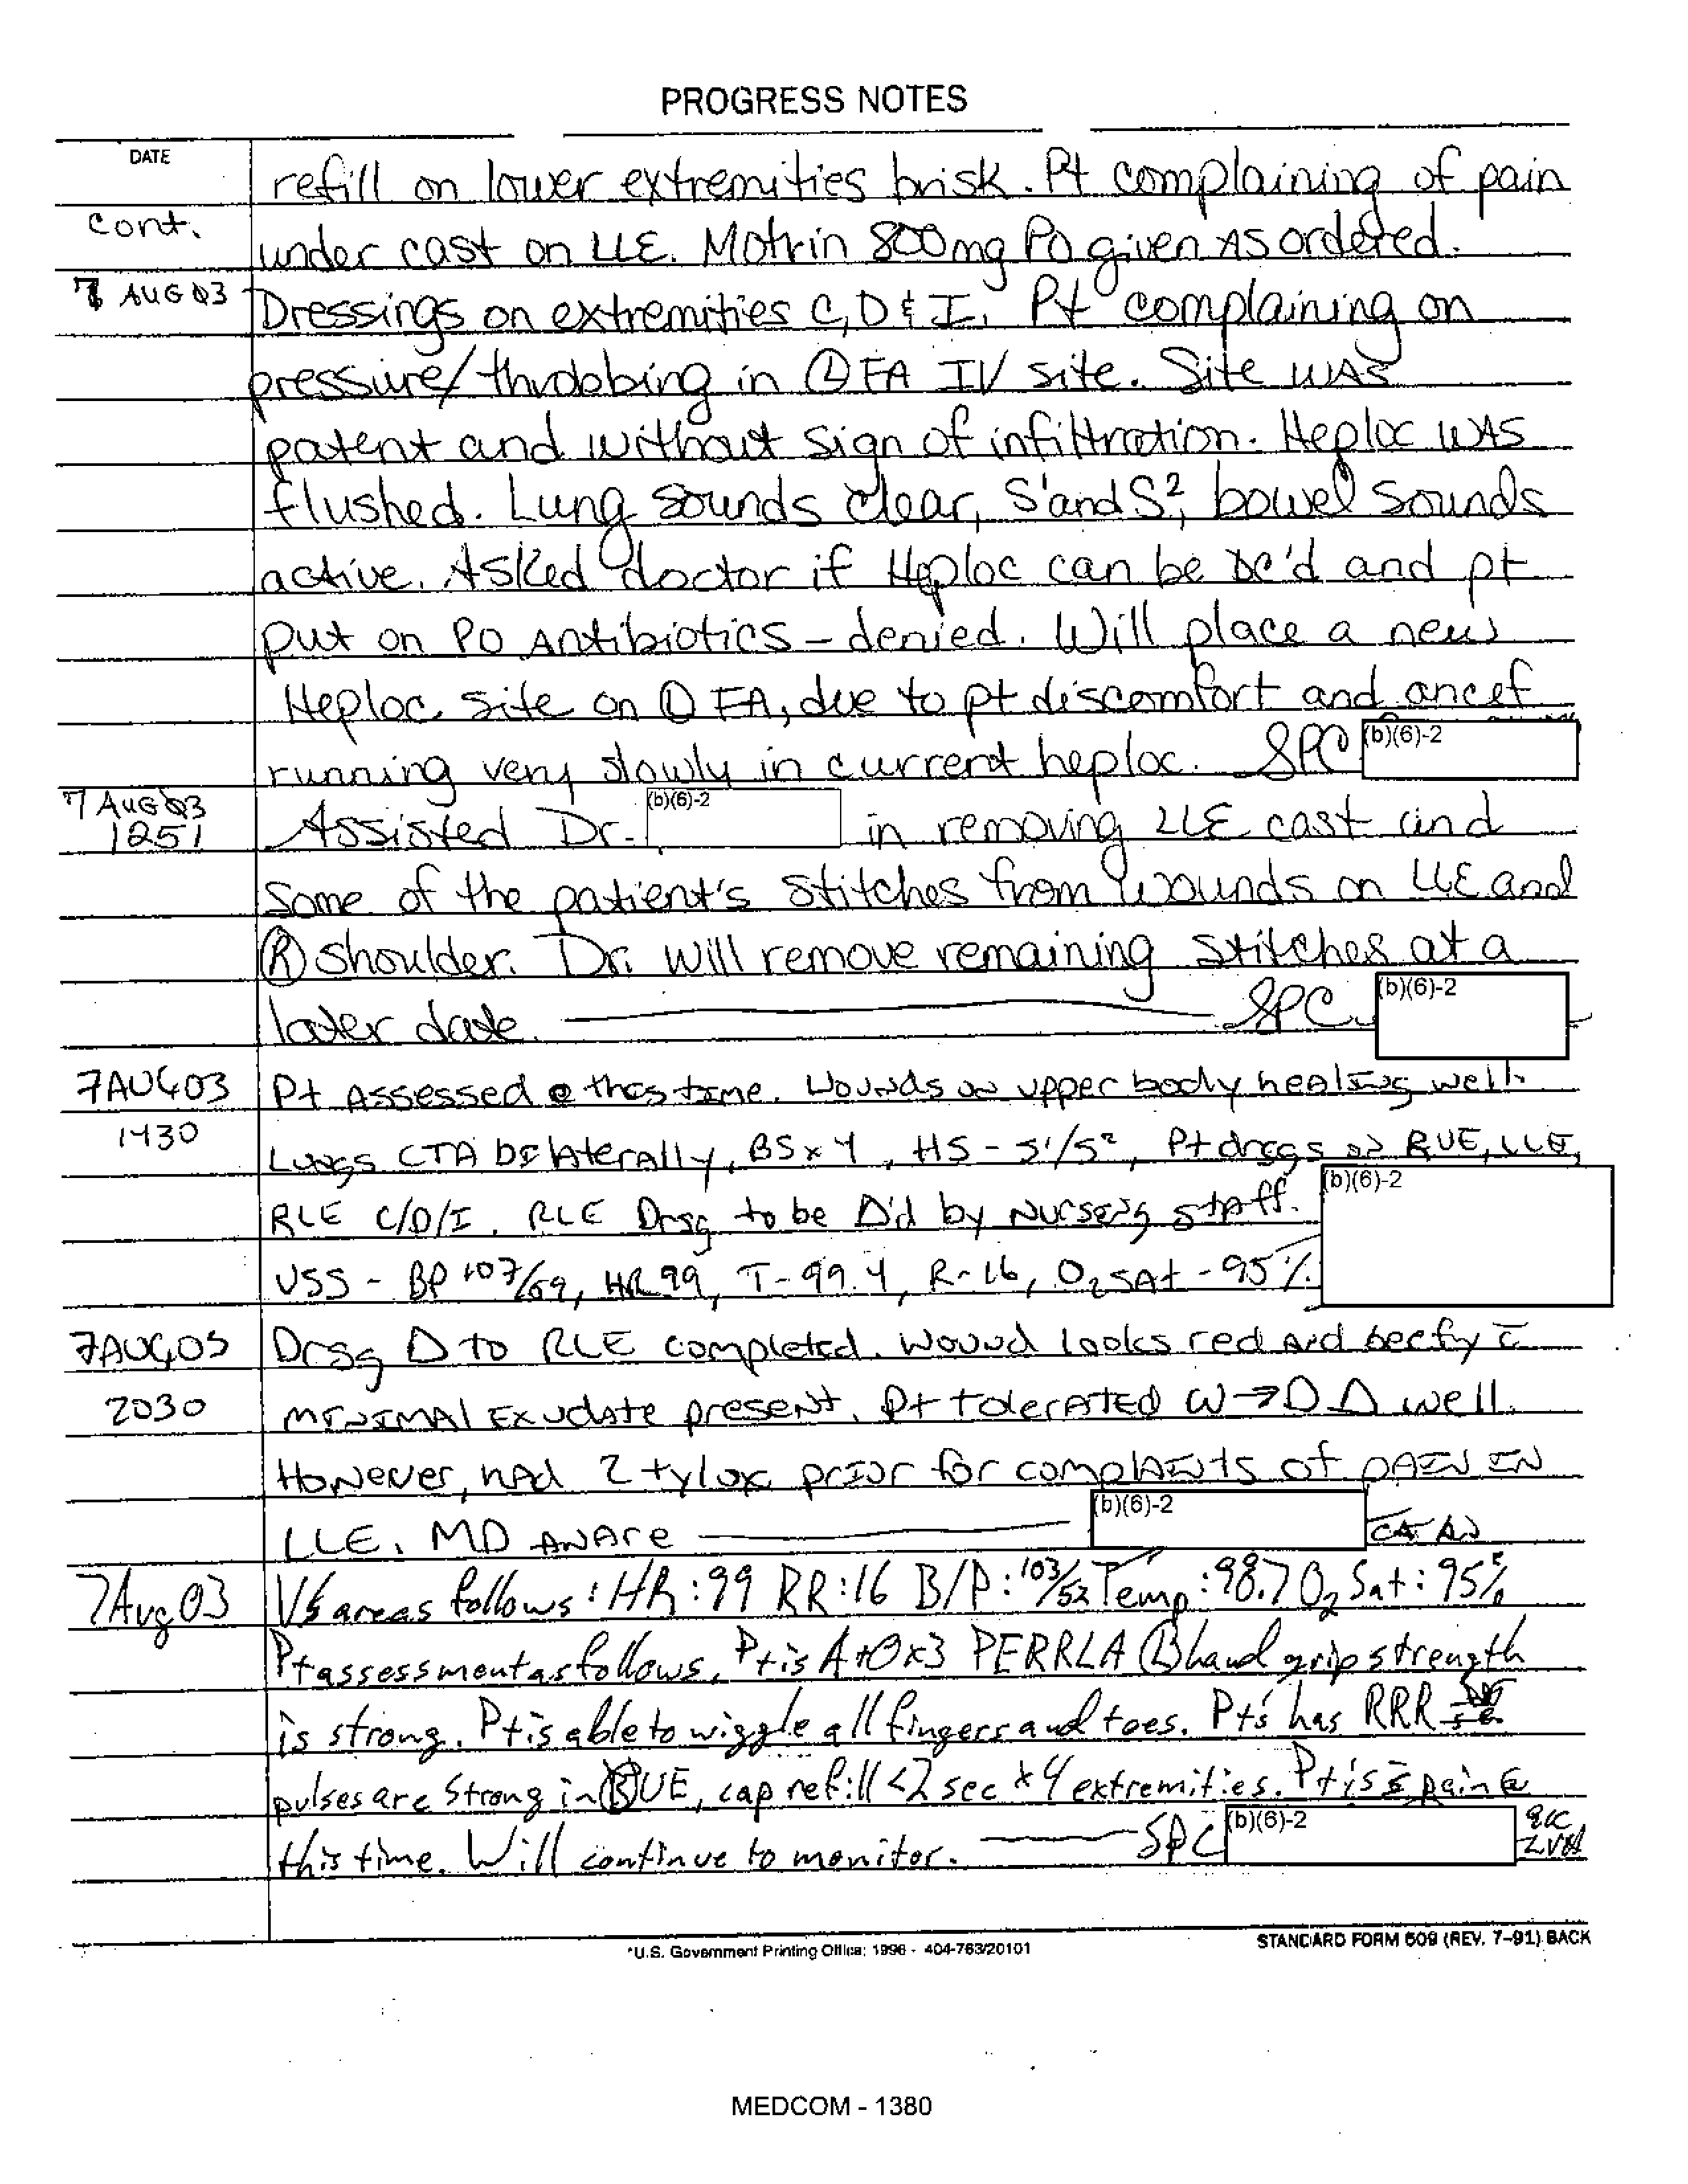 PROGRESS NOTES
DATE
refill on lower extremities brisk. Pt complaining of pain
cont.
under cast on LLE. Motrin 800mg PO given AS ordered.
7 AUG 03
Dressings on extremities C, D & I. Pt complaining on
pressure/throbbing in Ⓛ FA IV site. Site WAS
patent and without sign of infiltration. Heploc WAS
flushed. Lung sounds clear, S¹ and S², bowel sounds
active. Asked doctor if Heploc can be DC'd and pt
put on PO Antibiotics – denied. Will place a new
Heploc site on Ⓛ FA, due to pt discomfort and ancef
running very slowly in current heploc. SPC (b)(6)-2
7 AUG 03
1251
Assisted Dr. (b)(6)-2 in removing LLE cast and
Some of the patient's stitches from wounds on LLE and
Ⓡ shoulder. Dr. will remove remaining stitches at a
later date. SPC (b)(6)-2
7AUG03
Pt Assessed @ this time. Wounds on upper body healing well.
1430
Lungs CTA bilaterally, BS x 4, HS - S¹/S², Pt drsgs on RUE, LLE,
RLE C/D/I. RLE Drsg to be Δ'd by Nursing staff. (b)(6)-2
VSS - BP 107/59, HR 99, T - 99.4, R - 16, O₂ SAt - 95%
7AUG03
Drsg Δ to RLE completed. Wound looks red And beefy c̄
2030
minimal exudate present. Pt tolerated W→D Δ well.
However, had 2 tylox prior for complaints of pain in
LLE. MD aware (b)(6)-2
7Aug03
VS are as follows: HR: 99 RR: 16 B/P: 103/52 Temp: 98.7 O₂ Sat: 95%
Pt assessment as follows. Pt is A+O x3 PERRLA Ⓑ hand grip strength
is strong. Pt is able to wiggle all fingers and toes. Pt's has RRR
pulses are strong in Ⓑ UE, cap refill <2 sec x 4 extremities. Pt is s̄ pain @
this time. Will continue to monitor. SPC (b)(6)-2
*U.S. Government Printing Office: 1996 - 404-763/20101
STANDARD FORM 509 (REV. 7-91) BACK
MEDCOM - 1380